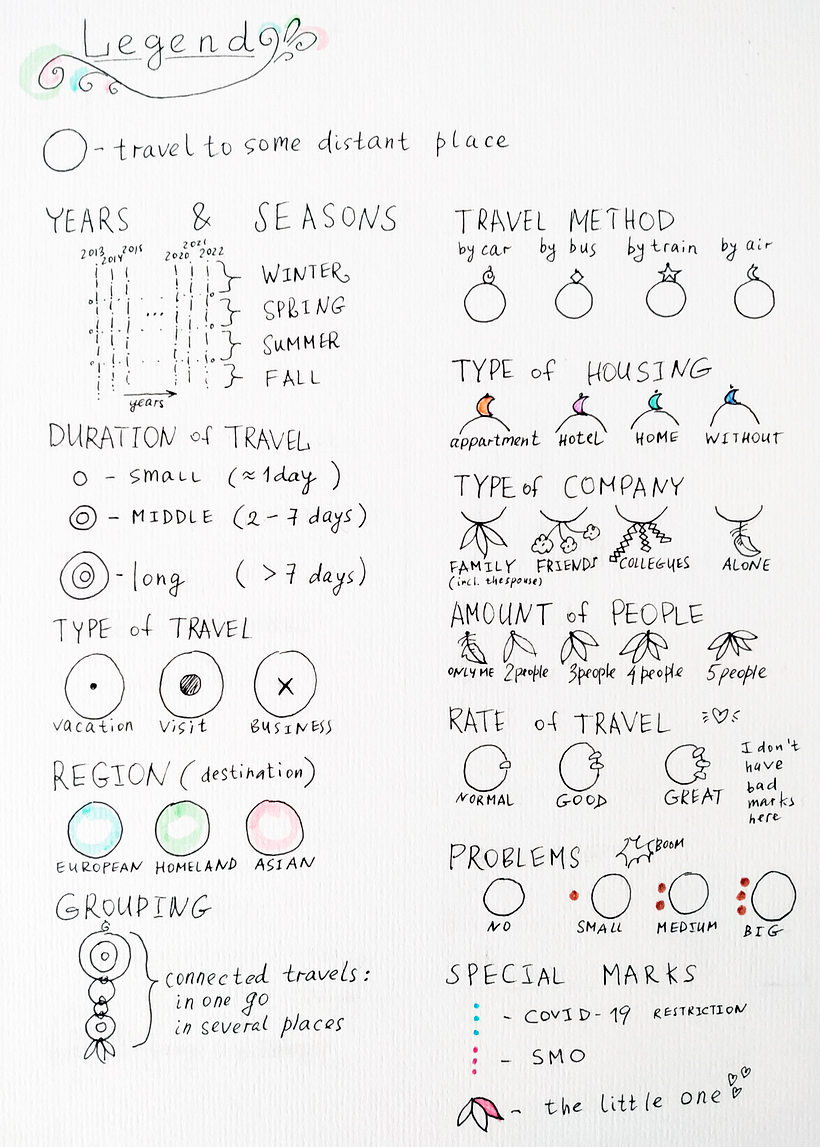 Legend
- travel to some distant place
YEARS & SEASONS
2013 2014 2015 2020 2021 2022
WINTER
SPRING
SUMMER
FALL
years
DURATION of TRAVEL
- SMALL (≈ 1day )
- MIDDLE (2 - 7 days)
- long ( > 7 days)
TYPE of TRAVEL
vacation visit BUSINESS
REGION (destination)
EUROPEAN HOMELAND ASIAN
GROUPING
connected travels:
in one go
in several places
TRAVEL METHOD
by car by bus by train by air
TYPE of HOUSING
appartment HOTEL HOME WITHOUT
TYPE of COMPANY
FAMILY FRIENDS COLLEGUES ALONE
(incl. the spouse)
AMOUNT of PEOPLE
ONLY ME 2 people 3 people 4 people 5 people
RATE of TRAVEL
NORMAL GOOD GREAT
I don't
have
bad
marks
here
PROBLEMS BOOM
NO SMALL MEDIUM BIG
SPECIAL MARKS
- COVID-19 RESTRICTION
- SMO
- the little one